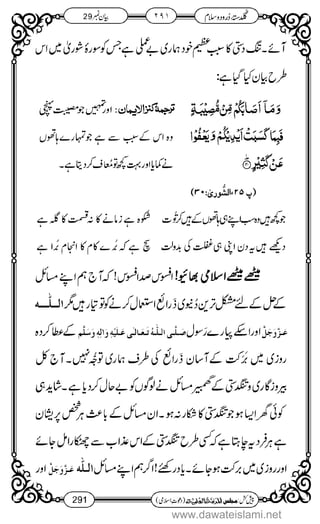 گلدستۂ درود و سلام ۲۹۱ بیان نمبر 29
آئے۔ تنگ دستی کا سبب عظیم خود ہماری بے عملی ہے جس کو سورۂ شوریٰ میں اس
طرح بیان کیا گیا ہے:
وَمَاۤ اَصَابَكُمْ مِّنْ مُّصِیْبَةٍ ترجمۂ کنز الایمان: اور تمہیں جو مصیبت پہنچی
فَبِمَا كَسَبَتْ اَیْدِیْكُمْ وَیَعْفُوْا وہ اس کے سبب سے ہے جو تمہارے ہاتھوں
عَنْ كَثِیْرٍ نے کمایا اور بہت کچھ تو معاف کر دیتا ہے۔
(پ ۲۵، الشوریٰ: ۳۰)
جو کچھ ہیں وہ سب اپنے ہی ہاتھوں کے ہیں کرتوت شکوہ ہے زمانے کا نہ قسمت کا گلہ ہے
دیکھے ہیں یہ دن اپنی ہی غفلت کی بدولت سچ ہے کہ بُرے کام کا انجام بُرا ہے
میٹھے میٹھے اسلامی بھائیو! افسوس! صد افسوس! کہ آج ہم اپنے مسائل
کے حل کے لئے مشکل ترین دُنیوی ذرائع استعمال کرنے کو تو تیار ہیں مگر اللہ
عَزَّوَجَلَّ اور اسکے پیارے رسول صَلَّی اللہُ تَعَالٰی عَلَیْہِ وَاٰلِہٖ وَسَلَّم کے عطا کردہ
روزی میں بَرَکت کے آسان ذرائع کی طرف ہماری توجُّہ نہیں۔ آج کل
بیروزگاری و تنگدستی کے گمبھیر مسائل نے لوگوں کو بے حال کر دیا ہے۔ شاید ہی
کوئی گھر ایسا ہو جو تنگدستی کا شکار نہ ہو۔ ان مسائل کے باعث ہر شخص پریشان
ہے ہر فرد یہ چاہتا ہے کہ کسی طرح تنگدستی کے اس عذاب سے چھٹکارا مل جائے
اور روزی میں بَرَکت ہو جائے۔ یاد رکھئے! اگر ہم اپنے مسائل اللہ عَزَّوَجَلَّ اور
291
www.dawateislami.net